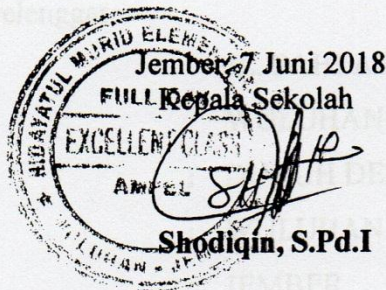 Jember, 7 Juni 2018
Kepala Sekolah
HIDAYATUL MURID ELEMEN
FULL DAY
EXCELLENT CLASS
AMPEL
WULUHAN - JEM
Shodiqin, S.Pd.I
JEMBER